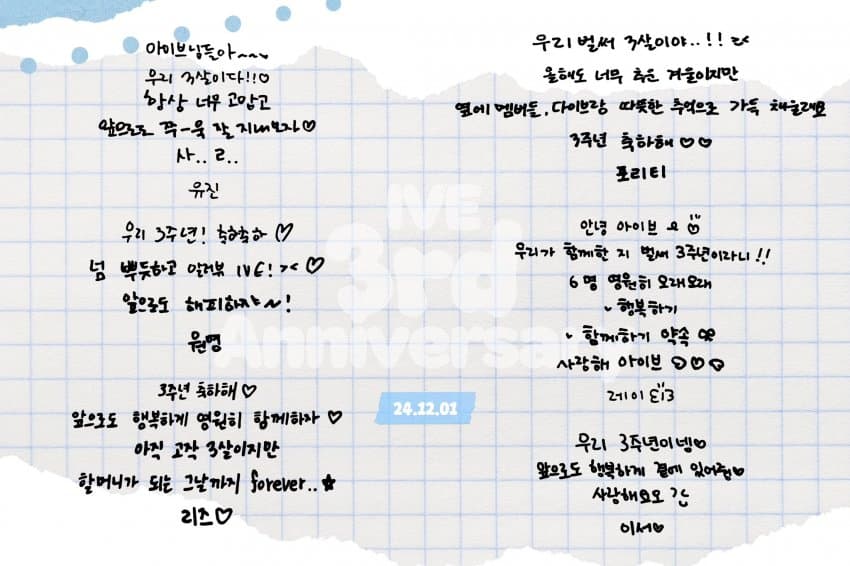 아이브님들아~~~
우리 3살이다!!♡
항상 너무 고맙고
앞으로도 쭈-욱 잘 지내보자♡
사..ㄹ..
유진
우리 3주년! 축하축하 ♡
넘 뿌듯하고 알러뷰 IVE! >< ♡
앞으로도 해피하자~!
원영
3주년 축하해 ♡
앞으로도 행복하게 영원히 함께하자 ♡
아직 고작 3살이지만
할머니가 되는 그날까지 forever..★
리즈♡
우리 벌써 3살이야..!!
올해도 너무 추운 겨울이지만
옆에 멤버들, 다이브랑 따뜻한 추억으로 가득 채울래요
3주년 축하해 ♡♡
포리티
안녕 아이브
우리가 함께한 지 벌써 3주년이라니!!
6명 영원히 오래오래
행복하기
함께하기 약속
사랑해 아이브
레이
우리 3주년이넹♡
앞으로도 행복하게 곁에 있어줘♡
사랑해요오
이서♡
IVE
3rd
Anniversary
24.12.01